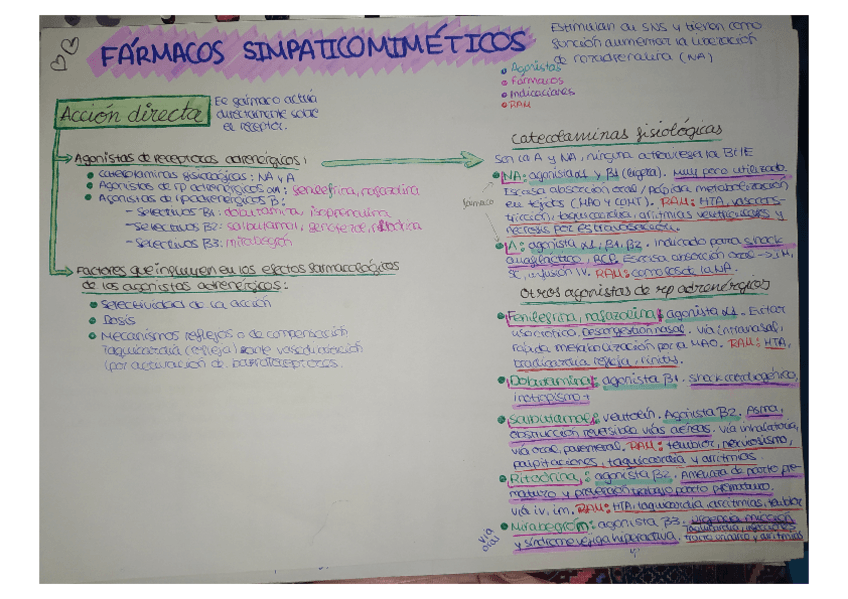 FÁRMACOS SIMPATICOMIMÉTICOS
Estimulan al SNS y tienen como
función aumentar la liberación
de noradrenalina (NA)
Agonistas
Fármacos
Indicaciones
RAM
Acción directa
El fármaco actúa
directamente sobre
el receptor.
Agonistas de receptores adrenérgicos:
catecolaminas fisiológicas: NA y A
Agonistas de rp adrenérgicos α1: fenilefrina, nafazolina
Agonistas de rp adrenérgicos β:
- Selectivos β1: dobutamina, isoprenalina
- Selectivos β2: salbutamol, ritodrina
- Selectivos β3: mirabegrón
Factores que influyen en los efectos farmacológicos
de los agonistas adrenérgicos:
Selectividad de la acción
Dosis
Mecanismos reflejos o de compensación
Taquicardia (refleja) ante vasodilatación
(por activación de barorreceptores.
catecolaminas fisiológicas
Son la A y NA, ninguna atraviesa la BHE
fármaco
NA: agonista α1 y β1 (ligera). Muy poco utilizado.
Escasa absorción oral / rápida metabolización
en tejidos (MAO y COMT). RAM: HTA, vasocons-
tricción, taquicardia, arritmias ventriculares y
necrosis por extravasación.
A: agonista α1, β1, β2. Indicado para shock
anafiláctico, RCP. Escasa absorción oral → IM,
SC, infusión IV. RAM: como los de la NA.
Otros agonistas de rp adrenérgicos
Fenilefrina, nafazolina: agonista α1. Evitar
uso crónico, Descongestión nasal. vía intranasal,
rápida metabolización por la MAO. RAM: HTA,
bradicardia refleja, rinitis.
Dobutamina: agonista β1. shock cardiogénico,
inotropismo +
Salbutamol: ventolín. Agonista β2. Asma,
obstrucción reversible vías aéreas. vía inhalatoria,
vía oral, parenteral. RAM: temblor, nerviosismo,
palpitaciones, taquicardia y arritmias.
Ritodrina: agonista β2. Amenaza de parto pre-
maturo y prevención trabajo parto prematuro.
vía iv, im. RAM: HTA, taquicardia, arritmias, temblor
vía
oral
Mirabegrón: agonista β3. urgencia micción
y síndrome vejiga hiperactiva. tracto urinario y arritmias